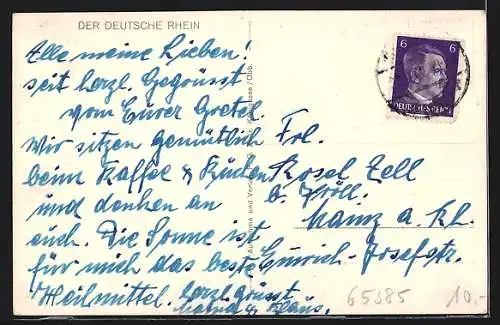 DER DEUTSCHE RHEIN
Alle meine Lieben!
seid herzl. Gegrüsst
von Eurer Gretel.
Wir sitzen gemütlich
beim Kaffee & Kuchen
und denken an
euch. Die Sonne ist
für mich das beste
Heilmittel. herzl. grüsst
& Klaus.
Aufnahme und Verlag
6 6
DEUTSCHES REICH
Frl.
Rosel Zell
b. Kröll.
Mainz a. Rh.
Emrich-Josefstr.
65385 10.-